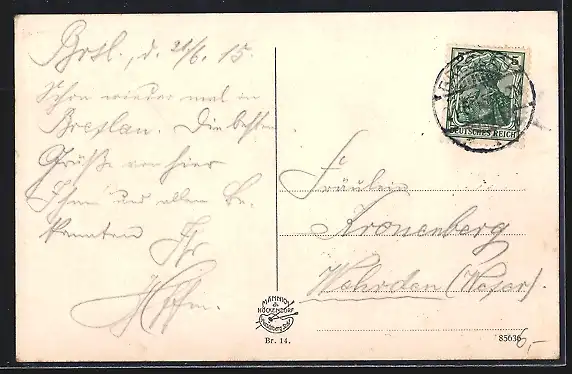 Brsl., d. 21/6. 15.
Schon wieder mal in
Breslau. Die besten
Grüße von hier
Ihnen und allen Be-
kannten Ihr
DEUTSCHES REICH
Fräulein
Kronenberg
Wehrden (Weser).
MÄNNICH
& HÖCKENDORF
Br. 14.
85636